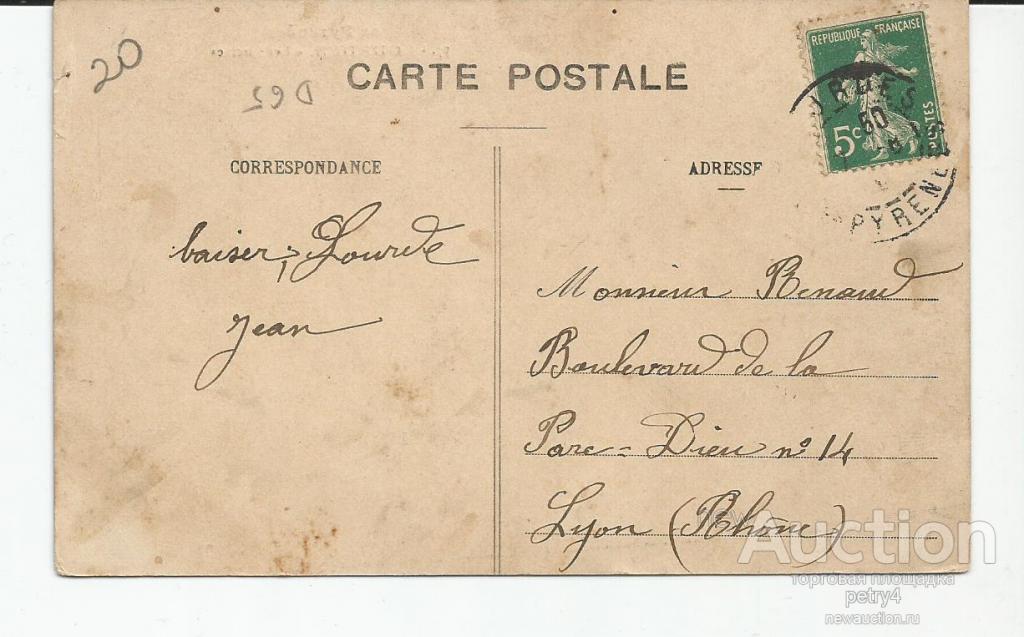 20
D 65
CARTE POSTALE
CORRESPONDANCE
ADRESSE
REPUBLIQUE FRANÇAISE
5c
POSTES
RDES
PYRENE
baiser, Lourde
Jean
Monsieur Renaud
Boulevard de la
Parc = Dieu n° 14
Lyon (Rhone)
Auction
торговая площадка
petry4
newauction.ru